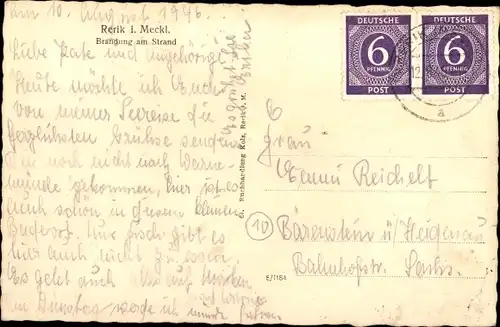 am 10. August 1946.
Rerik i. Meckl.
Brandung am Strand
Liebe Pate und Angehörige
Heute möchte ich Euch
von meiner Seereise die
herzlichsten Grüße senden
noch nicht nach Warne-
münde gekommen, hier ist es
auch schön in diesem kleinen
Badeort. Nur Fisch gibt es
hier auch nicht zu essen.
Es geht auch
in werde ich
Buchhandlung Kolz, Rerik i. M.
DEUTSCHE
6
PFENNIG
POST
DEUTSCHE
6
PFENNIG
POST
a
6
Frau
Reichelt
10
Bärenstein ü/Heidenau
Bahnhofstr. Sachs.
E/1184